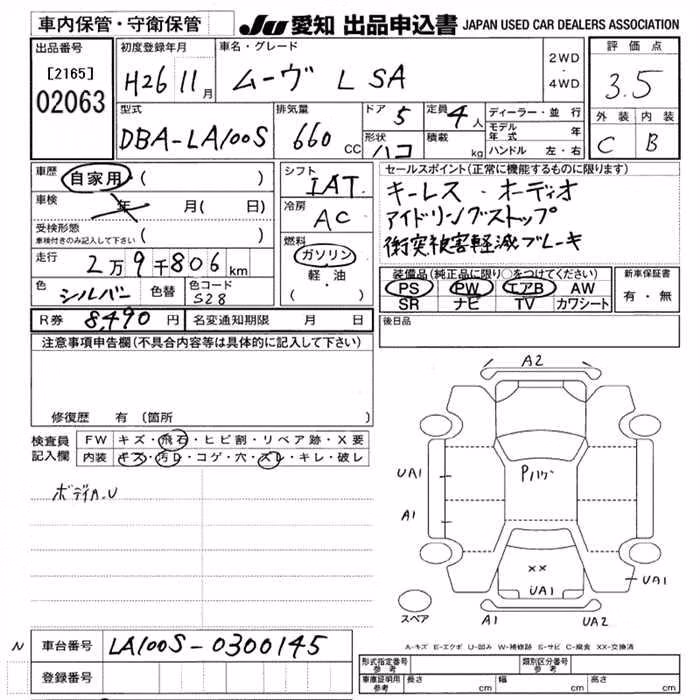 車内保管・守衛保管
JU 愛知 出品申込書 JAPAN USED CAR DEALERS ASSOCIATION
出品番号 初度登録年月 車名・グレード 2WD ・ 4WD 評価点
[2165]
02063 H26 11月 ムーヴ L SA 3.5
型式 排気量 ドア 5 定員 4人 ディーラー・並行 外装 内装
DBA-LA100S 660 CC 形状 ハコ 積載 kg モデル年式 年 C B
ハンドル 左・右
車歴 自家用 ( ) シフト IAT セールスポイント(正常に機能するものに限ります)
車検 年 月( 日) 冷房 AC キーレス・オーディオ
受検形態 アイドリングストップ
車検付きのみ記入して下さい ( ) 燃料 ガソリン 衝突被害軽減ブレーキ
走行 2万9千806km 軽・油 装備品(純正品に限り○をつけてください) 新車保証書
色 シルバー 色替 色コード S28 ( ・ ) PS PW エアB AW 有・無
SR ナビ TV カワシート
R券 8,490円 名変通知期限 月 日 後日品
注意事項申告欄(不具合内容等は具体的に記入して下さい)
修復歴 有 (箇所 )
検査員 FW キズ・飛石・ヒビ割・リペア跡・X要
記入欄 内装 キズ・汚レ・コゲ・穴・スレ・キレ・破レ
ボディA.U
A2
Pハゲ
UA1
A1
XX
UA1
UA1
スペア A1 UA2
A-キズ E-エクボ U-凹み W-補修跡 S-サビ C-腐食 XX-交換済
N 車台番号 LA100S-0300145
登録番号
形式指定番号 参考 類別区分番号 参考
車庫証明用 参考 長さ cm 幅 cm 高さ cm